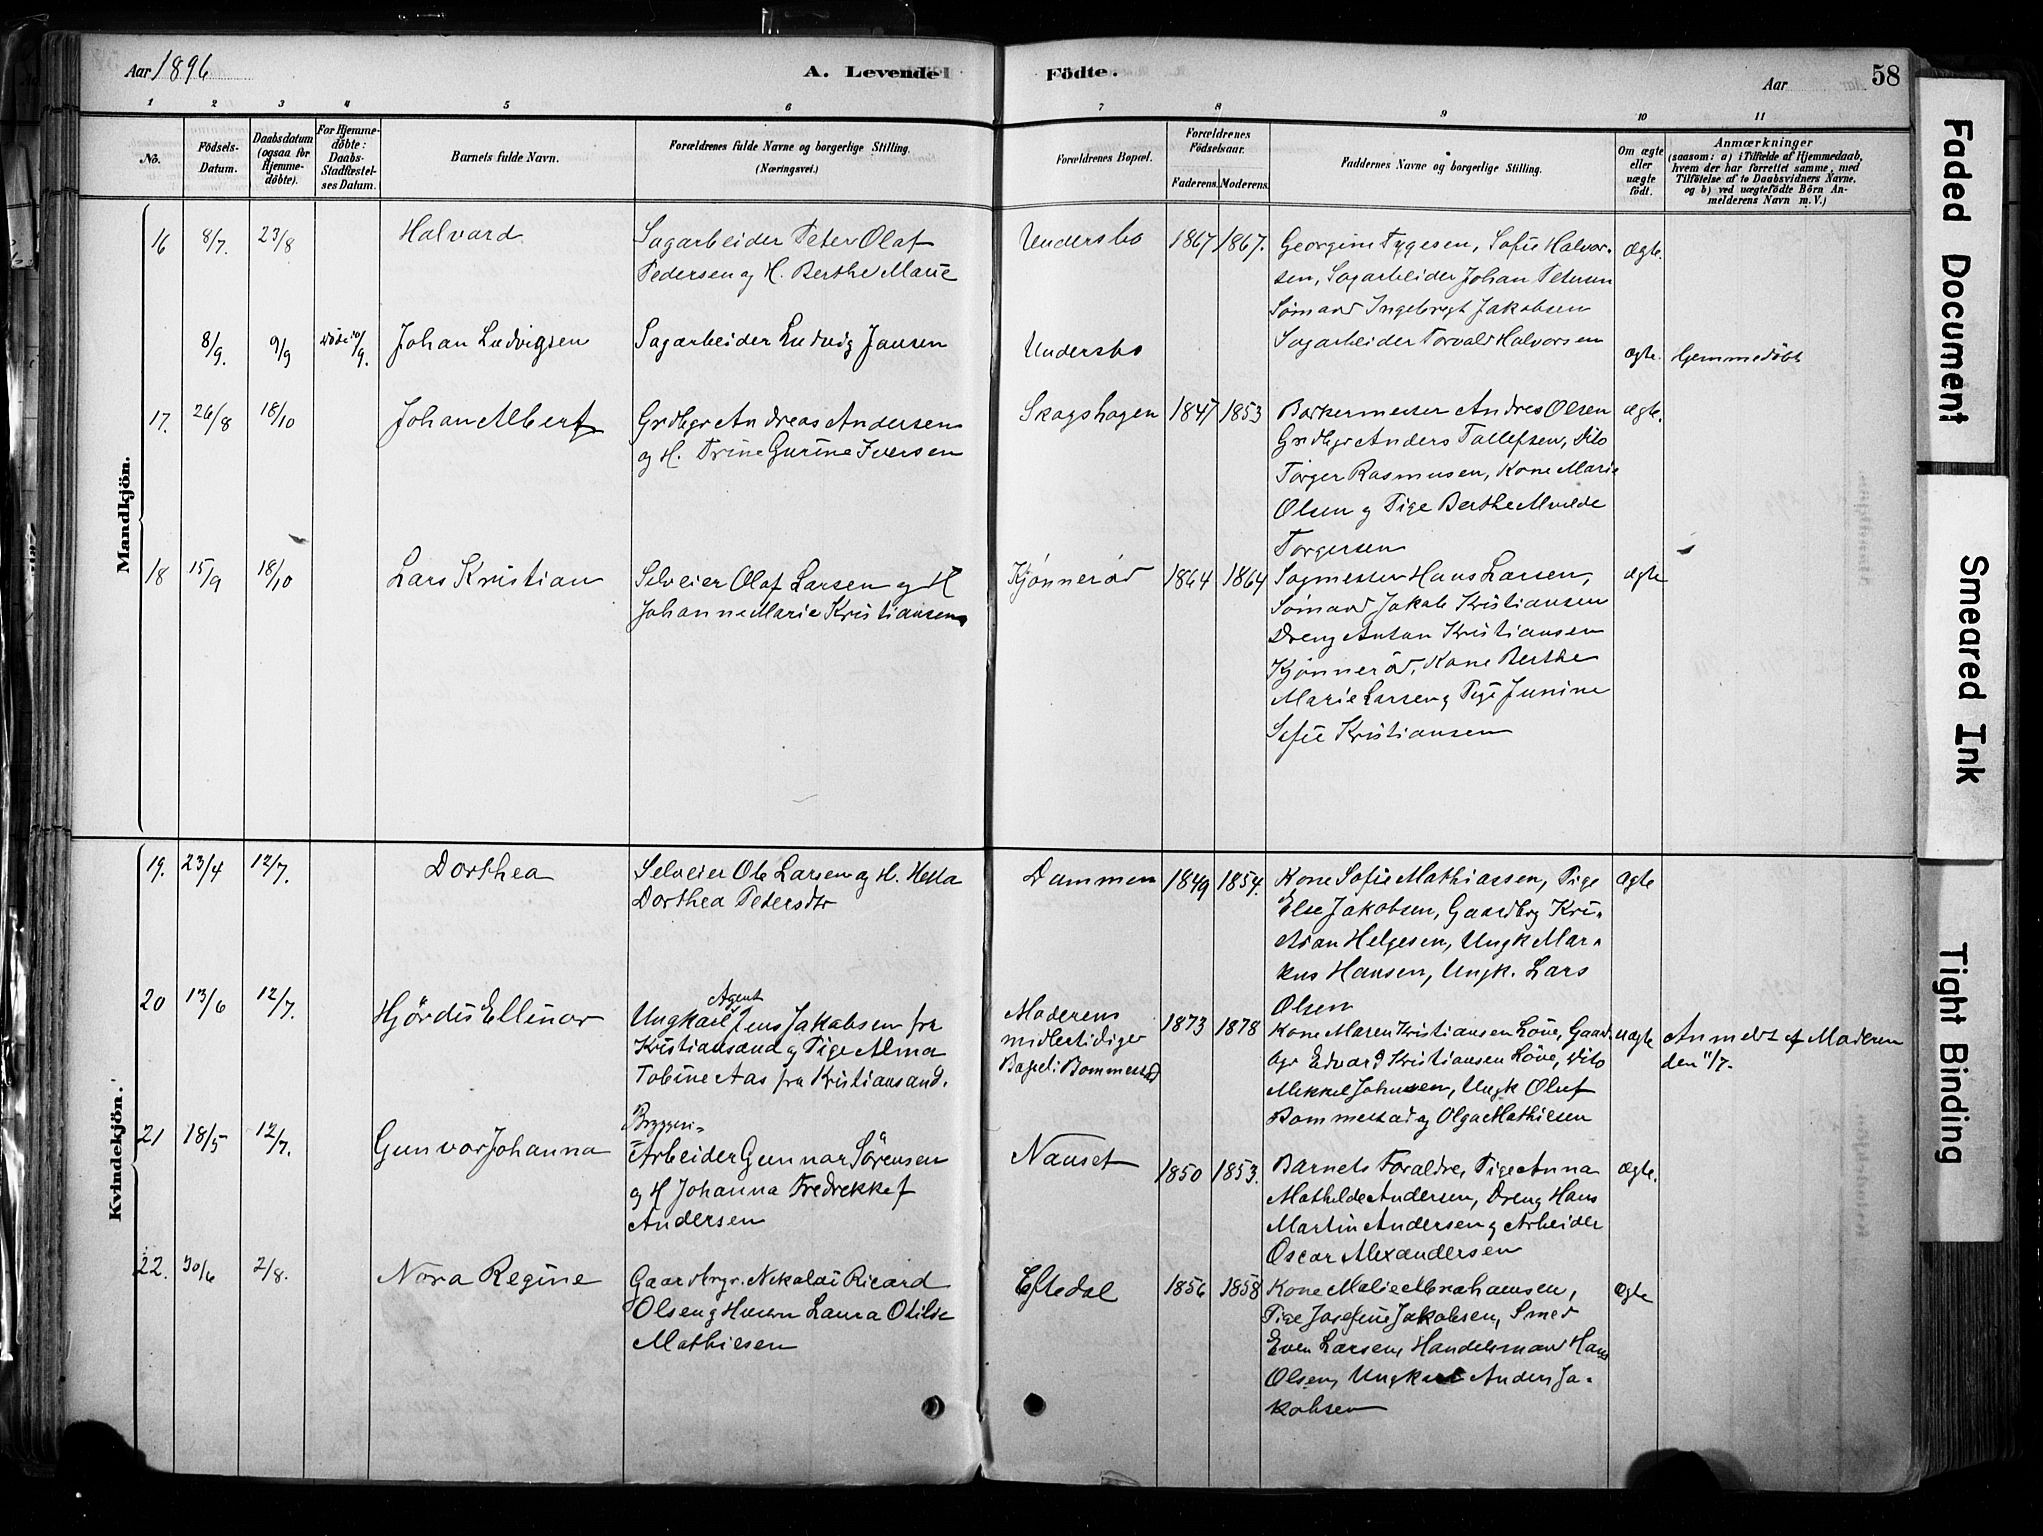 Aar 1896
A. Levende
Födte.
Aar
58
1 2 3 4 5 6 7 8 9 10 11
No.
Födsels-Datum.
Daabsdatum (ogsaa for Hjemme-döbte).
For Hjemme-döbte: Daabs-Stadfæstel-ses Datum.
Barnets fulde Navn.
Forældrenes fulde Navne og borgerlige Stilling. (Næringsvei.)
Forældrenes Bopæl.
Forældrenes Födselsaar.
Faderens. Moderens.
Faddernes Navne og borgerlige Stilling.
Om ægte eller uægte født.
Anmærkninger
(saasom: a) i Tilfælde af Hjemmedaab, hvem der har forrettet samme, med Tilföielse af to Daabsvidners Navne, og b) ved uægtefödte Börn An-melderens Navn m. V.)
Mandkjön.
16 8/7. 23/8 Halvard
Sagarbeider Peter Olaf
Pedersen og H. Berthe Marie
Undersbo 1867 1867.
Georgine Tygesen, Sofie Halvor-
sen, Sagarbeider Johan Petersen
Sømand Ingebregt Jakobsen
Sagarbeider Torvald Halvorsen
ægte.
8/9. 9/9 10/9. Johan Ludvigsen
Sagarbeider Ludvig Jansen
Undersbo
ægte. Hjemmedöbt
17. 26/8 18/10 Johan Albert
Grdbgr Andreas Andersen
og H. Trine Gurine Iversen
Skogshagen 1847 1853
Barkermester Andres Olsen
Grdbgr Anders Tollefsen, dito
Törger Rasmusen, Kone Marie
Olsen og Pige Berthe
Torgersen
ægte.
18 15/9 18/10 Lars Kristian
Selveier Olaf Larsen og H
Johanne Marie Kristiansen
Kjønneröd 1864 1864
Sagmester Hans Larsen,
Sömand Jakob Kristiansen
Dreng Anton Kristiansen
Kjönneröd, Kone Berthe
Marie Larsen og Pige Junine
Sofie Kristiansen
ægte
Kvindekjön.
19. 23/4 12/7. Dorthea
Selveier Ole Larsen og H. Hella
Dorthea Pedersdtr
Dammen 1849 1854.
Kone Sofie Mathiassen, Pige
Else Jakobsen, Gaardbrg Kri-
stian Helgesen, Ungk Mar-
kus Hansen, Ungk. Lars
Olsen
ægte
20 13/6 12/7. Hjördis Ellinor
Agent
Ungkarl Jens Jakobsen fra
Kristiansand og Pige Alma
Tobine Aas fra Kristiansand.
Moderens
midlertidige
Bopæl: Bommestad
1873 1878
Kone Maren Kristiansen Löve, Gaard-
bgr Edvard Kristiansen Löve, dito
Mikkel Johnsen, Ungk Oluf
Bommestad og Olga Mathisen
uægte
Anmeldt af Moderen
den 11/7.
21 18/5 12/7. Gunvor Johanna
Bryggeri-
Arbeider Gunnar Sörensen
og H Johanna Fredrekke f
Andersen
Nanset 1850 1853.
Barnets Foraldre, Pige Anna
Mathilde Andersen, Dreng Hans
Martin Andersen og Arbeider
Oscar Alexandersen
ægte.
22. 30/6 2/8. Nora Regine
Gaardbrgr. Nikolai Ricard
Olsen og Hustru Laura Otilse
Mathiesen
Eftedal 1856 1858
Kone Malie Abrahamsen,
Pige Josefine Jakobsen, Smed
Even Larsen, Handelsmand Hans
Olsen, Ungkarl Anders Ja-
kobsen
ægte
Faded Document
Smeared Ink
Tight Binding